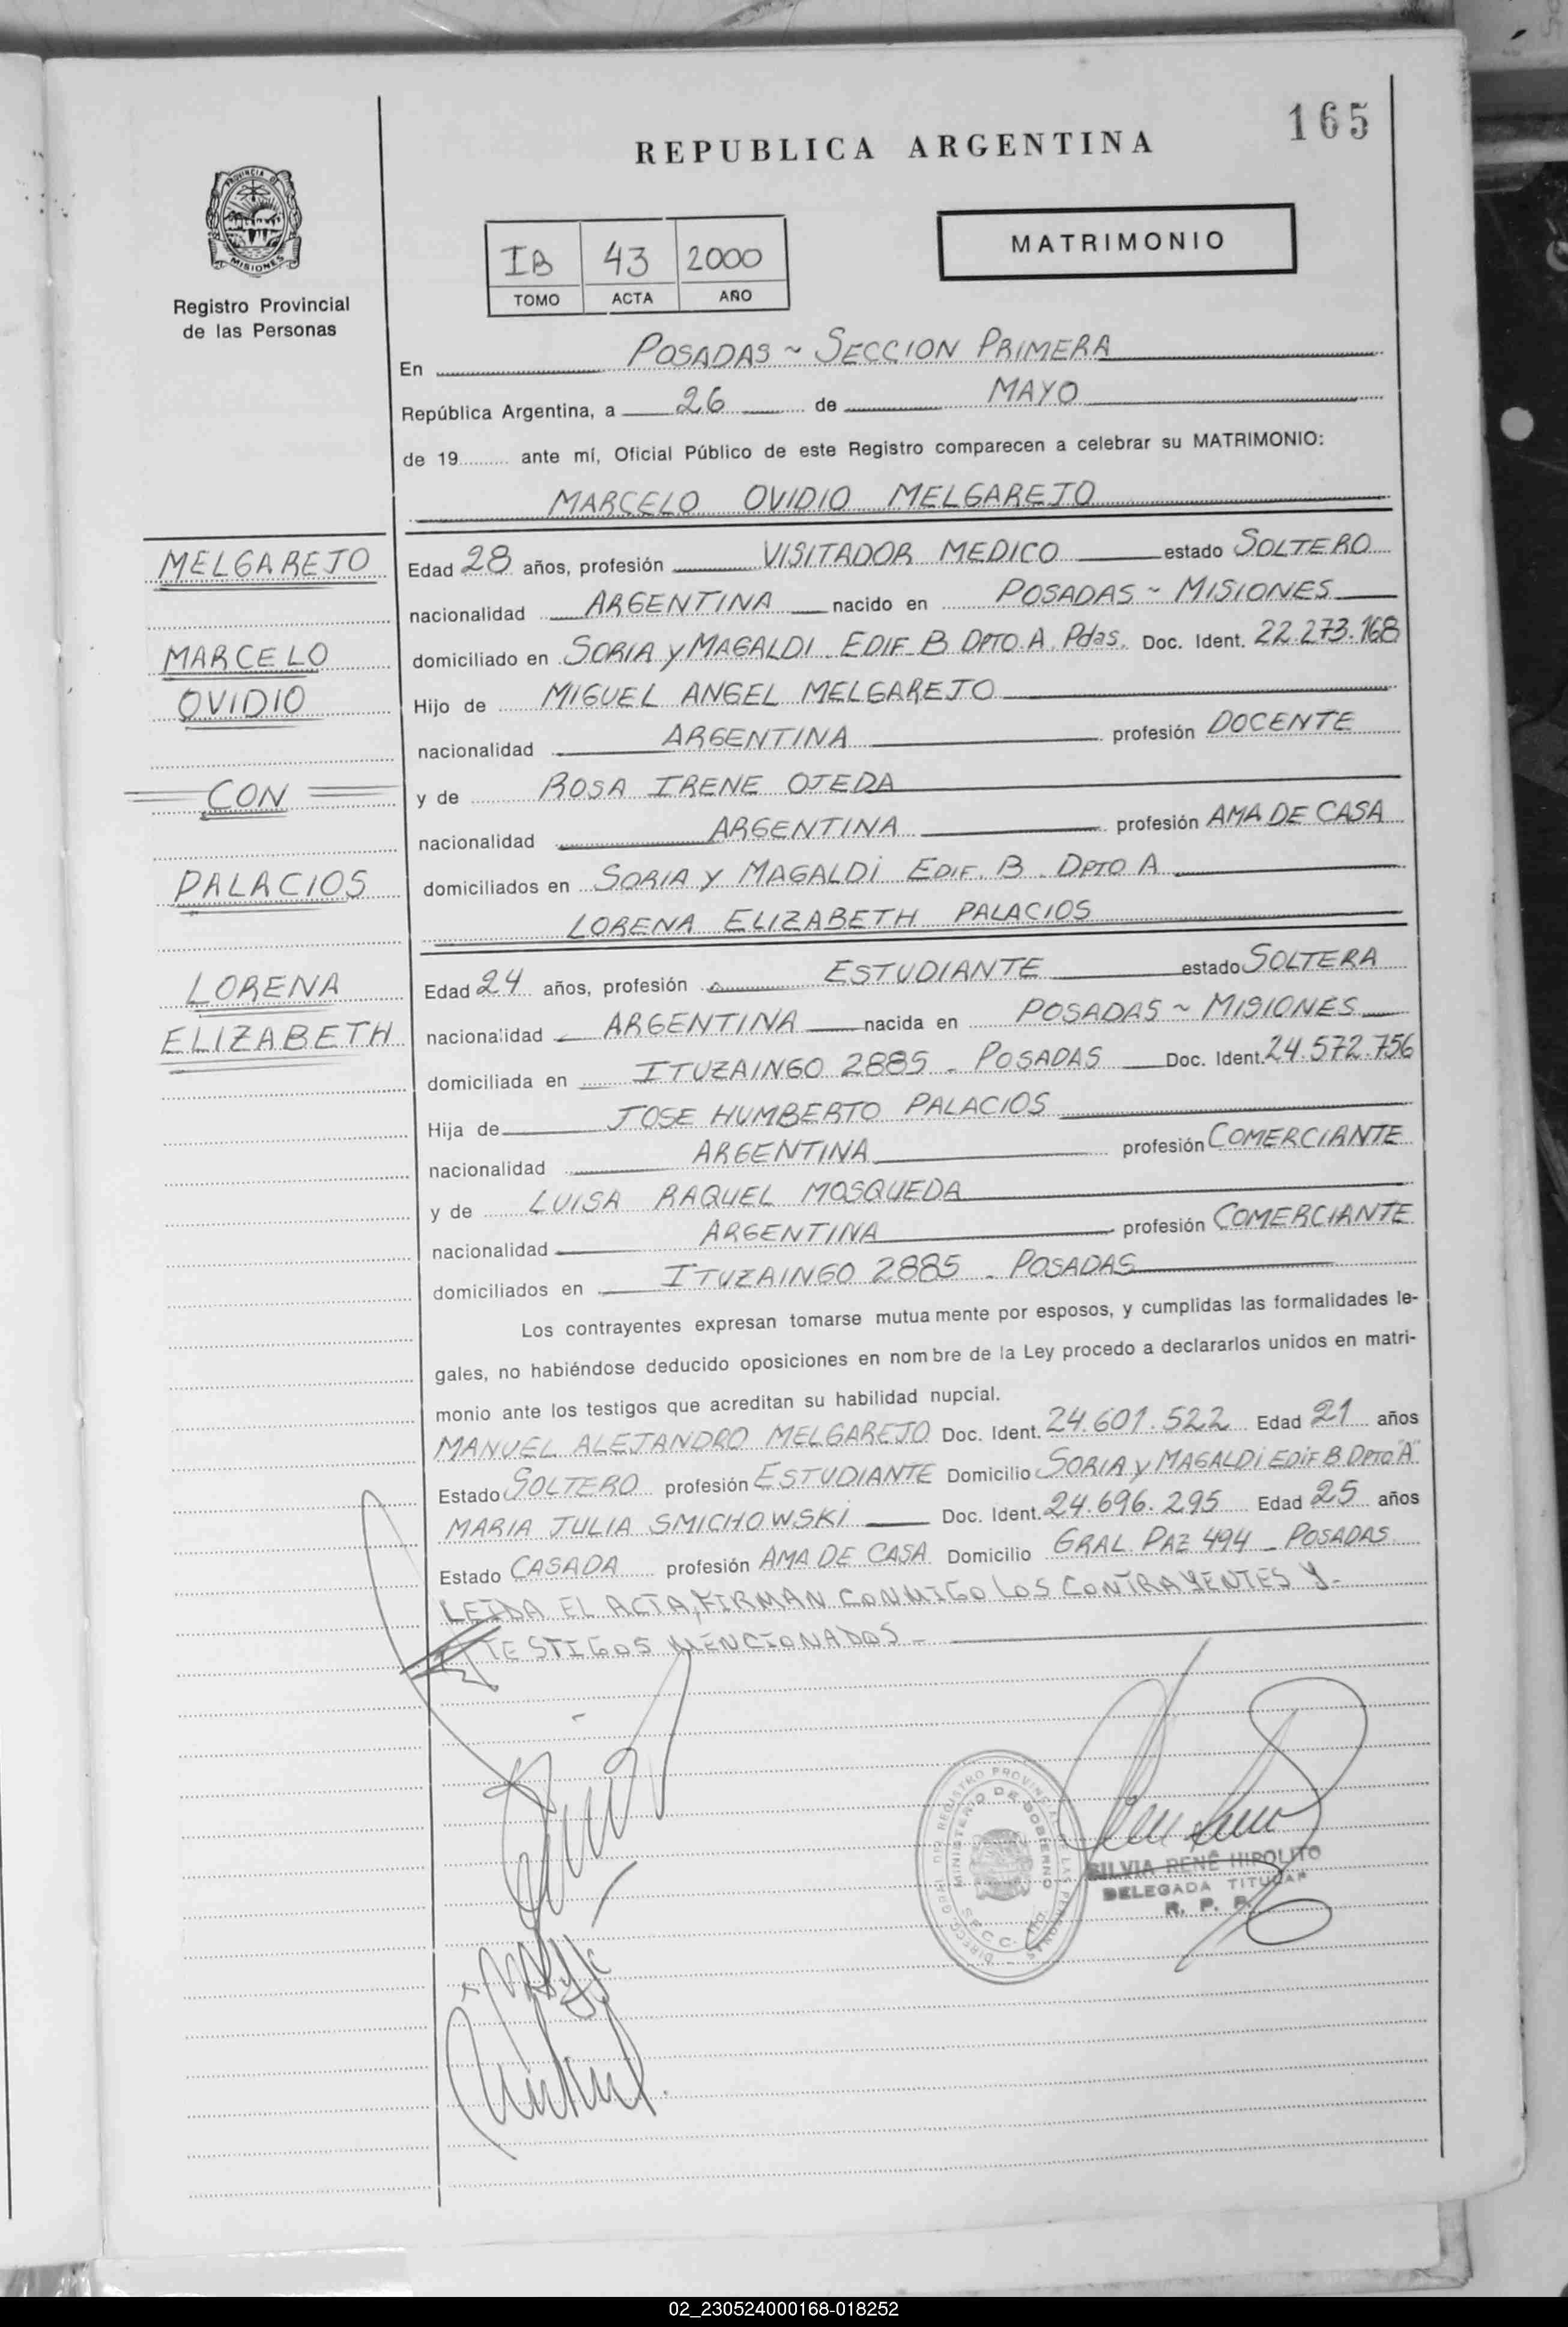 165
REPUBLICA ARGENTINA
PROVINCIA DE
MISIONES
Registro Provincial
de las Personas
IB 43 2000
TOMO ACTA AÑO
MATRIMONIO
En POSADAS ~ SECCION PRIMERA
República Argentina, a 26 de MAYO
de 19......... ante mí, Oficial Público de este Registro comparecen a celebrar su MATRIMONIO:
MARCELO OVIDIO MELGAREJO
MELGAREJO
MARCELO
OVIDIO
CON
PALACIOS
LORENA
ELIZABETH
Edad 28 años, profesión VISITADOR MEDICO estado SOLTERO
nacionalidad ARGENTINA nacido en POSADAS ~ MISIONES
domiciliado en SORIA y MAGALDI EDIF B DPTO. A. Pdas. Doc. Ident. 22.273.168
Hijo de MIGUEL ANGEL MELGAREJO
nacionalidad ARGENTINA profesión DOCENTE
y de ROSA IRENE OJEDA
nacionalidad ARGENTINA profesión AMA DE CASA
domiciliados en SORIA y MAGALDI EDIF. B. DPTO A
LORENA ELIZABETH PALACIOS
Edad 24 años, profesión ESTUDIANTE estado SOLTERA
nacionalidad ARGENTINA nacida en POSADAS ~ MISIONES
domiciliada en ITUZAINGO 2885 - POSADAS Doc. Ident. 24.572.756
Hija de JOSE HUMBERTO PALACIOS
nacionalidad ARGENTINA profesión COMERCIANTE
y de LUISA RAQUEL MOSQUEDA
nacionalidad ARGENTINA profesión COMERCIANTE
domiciliados en ITUZAINGO 2885 - POSADAS
Los contrayentes expresan tomarse mutua mente por esposos, y cumplidas las formalidades le-
gales, no habiéndose deducido oposiciones en nom bre de la Ley procedo a declararlos unidos en matri-
monio ante los testigos que acreditan su habilidad nupcial.
MANUEL ALEJANDRO MELGAREJO Doc. Ident. 24.601.522 Edad 21 años
Estado SOLTERO profesión ESTUDIANTE Domicilio SORIA y MAGALDI EDIF B DPTO "A"
MARIA JULIA SMICHOWSKI Doc. Ident. 24.696.295 Edad 25 años
Estado CASADA profesión AMA DE CASA Domicilio GRAL PAZ 494 - POSADAS
LEIDA EL ACTA, FIRMAN CONMIGO LOS CONTRAYENTES Y-
TESTIGOS MENCIONADOS -
MINISTERIO DE GOBIERNO
SILVIA RENÉ HIPOLITO
DELEGADA TITULAR
R. P. P.
02_230524000168-018252